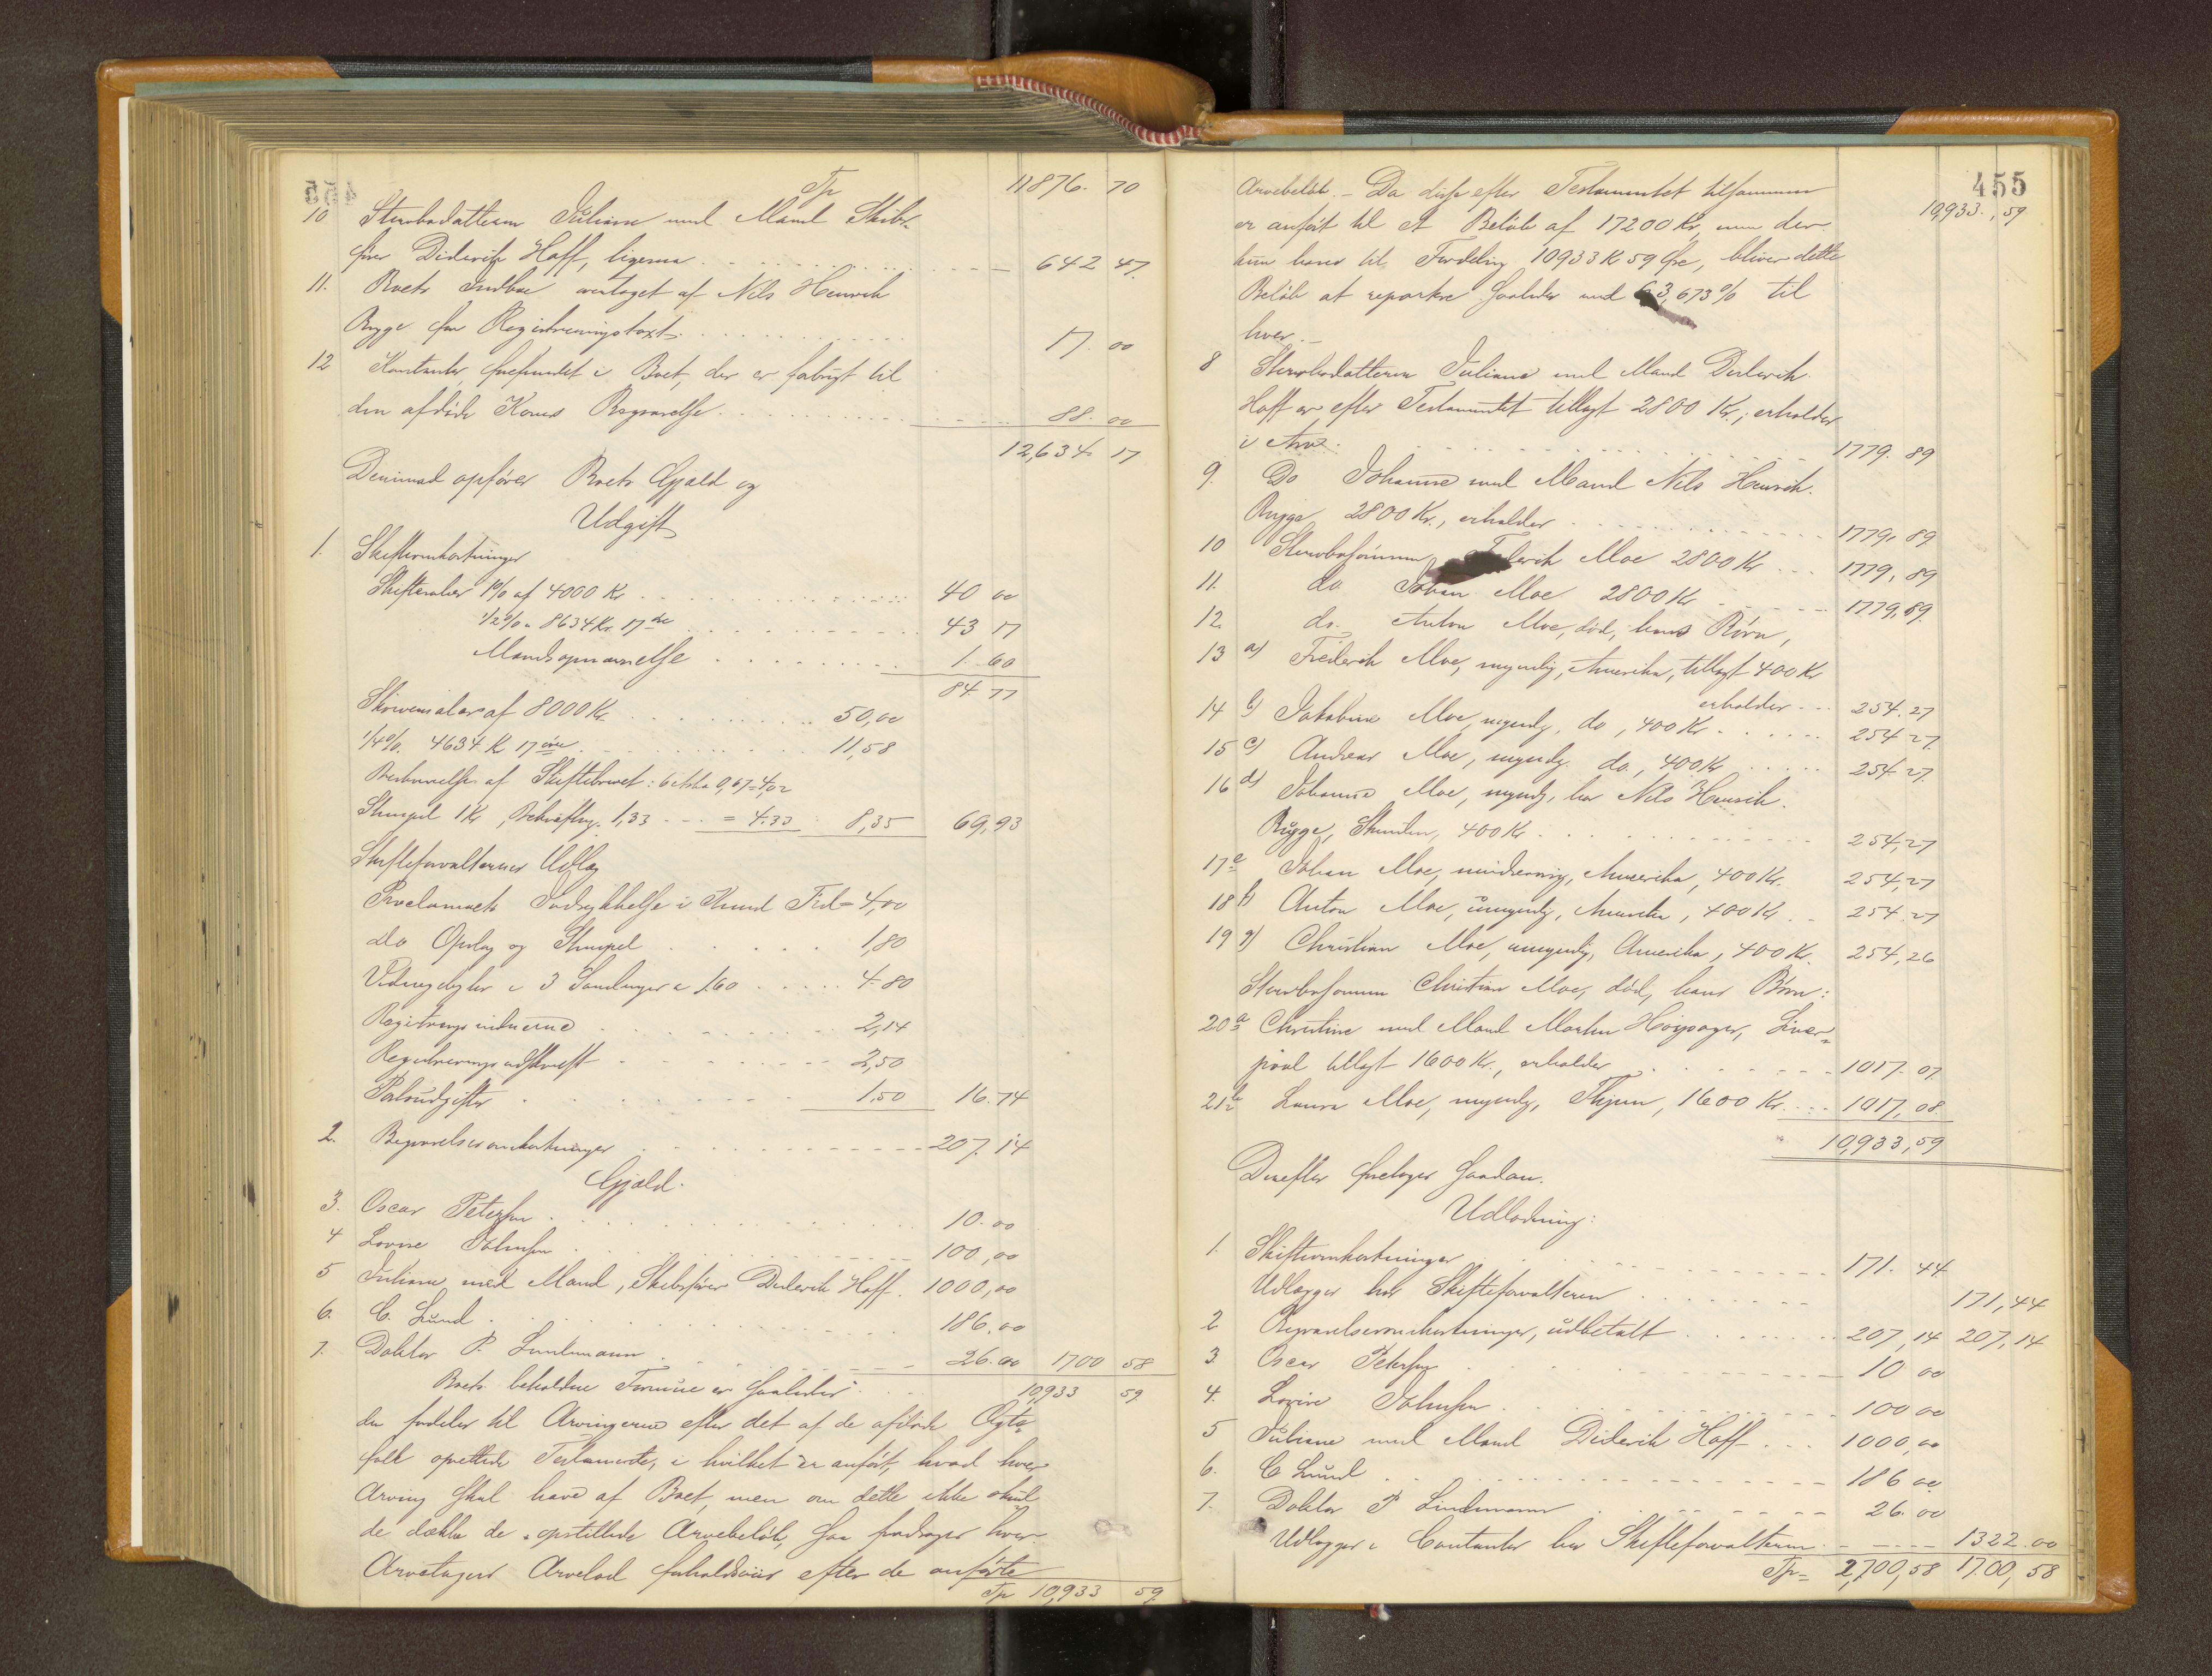 Tp 11876. 70
10 Stervbodatteren Juliane med Mand Skibs-
fører Diderik Hoff, ligesaa 642 47.
11. Boets Indboe overtaget af Nils Henrik
Rygge for Registreringstaxt 17. 00
12 Kontanter forefundet i Boet, der er forbrugt til
den afdøde Kones Begravelse 88. 00
12,634 17
Derimod opføres Boets Gjæld og
Udgift
1. Skifteomkostninger
Skiftesalær 1% af 4000 Kr 40 00
1/2% " 8634 Kr. 17 Øre 43 17
Mandsopnævnelse 1. 60
84. 77
Skriversalær af 8000 Kr. 50,00
1/4% 4634 K 17 øre 11,58
Beskrivelse af Skiftebrevet: 6 Ark a 0,67 = 4,02
Stempel 1 Kr, Bekræftng. 1,33 = 4.33 8,35 69,93
Skifteforvalterens Udlæg
Proclamaets Indrykkelse i Kund Tid = 4,00
do Opslag og Stempel 1,80
Vidnegebyhr i 3 Samlinger a 1.60 4.80
Registreringsvidnerne 2,14
Registreringsudskrift 2,50
Portoudgifter 1.50 16.74
2. Begravelsesomkostninger 207. 14
Gjæld.
3. Oscar Petersen 10. 00
4 Lovise Johnsen 100,00
5 Juliane med Mand, Skibsfører Diderik Hoff. 1000,00
6. C. Lund 186.00
7. Doktor P. Lindemann 26.00 1700 58
Boets beholdne Formue er saaledes 10,933 59.
der fordeles til Arvingerne efter det af de afdøde Ægte-
folk oprettede Testamente, i hvilket er anført, hvad hver
Arving skal have af Boet, men om dette ikke skul
de dække de opstillede Arvebeløb, saa fradrages hver
Arvetagers Arvelod forholdsviis efter de anførte
Tp 10,933 59.
455
10,933., 59
Arvebeløb. - Da disse efter Testamentet tilsammen
er anført til et Beløb af 17200 Kr, men der
kun haves til Fordeling 10933 K 59 Øre, bliver dette
Beløb at repartere saaledes med 63,673% til
hver. -
8 Stervbodatteren Juliane med Mand Diderik
Hoff er efter Testamentet tillagt 2800 Kr., erholder
i Arv 1779. 89
9. Do Johanne med Mand Nils Henrik
Rygge 2800 Kr., erholder 1779. 89
10 Stervbosønnen Frederik Moe 2800 Kr 1779, 89
11. do Johan Moe 2800 Kr 1779,89.
12. do. Anton Moe, død, hans Børn,
13 a) Frederik Moe, myndig, Amerika, tillagt 400 Kr
erholder 254.27
14 b) Jakobine Moe, myndg, do, 400 Kr 254 27.
15 c) Andreas Moe, myndg do., 400 Kr 254 27.
16 d) Johanne Moe, myndg, hos Nils Henrik
Rygge, 400 Kr 254,27
17 e Johan Moe, mindreaarig, Amerika, 400 Kr. 254,27
18 f) Anton Moe, umyndg, Amerika, 400 Kr 254.27
19 g) Christian Moe, umyndig, Amerika, 400 Kr. 254,26
Stervbosønnen Christian Moe, død, hans Børn:
20 a Christine med Mand Martin Høijsager, Liver-
pool tillagt 1600 Kr., erholder 1017. 07.
21 b Laura Moe, myndig, Thjem, 1600 Kr. 1017,08
10,933,59
Derefter foretages saadan
Udlodning:
1. Skifteomkostninger 171. 44.
Udlægges hos Skifteforvalteren 171,44
2 Begravelsesomkostninger, udbetalt 207,14 207,14
3. Oscar Petersen 10 00
4. Lovise Johnsen 100 00
5 Juliane med Mand Diderik Hoff 1000,00
6. C Lund 186 00
7. Doktor P Lindemann 26. 00
Udlægges i Contanter hos Skifteforvalteren 1322.00
Tp = 2,700,58 1700,58